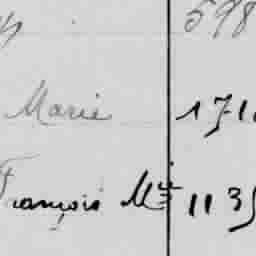 598
Marie 171
François Mie 1139